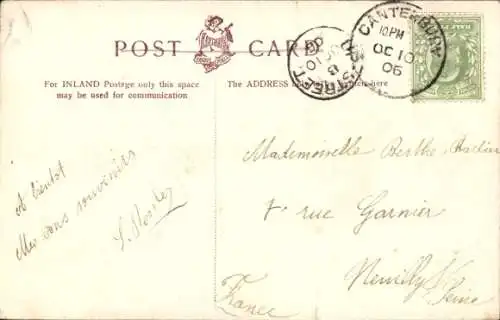 POST CARD
For INLAND Postage only this space
may be used for communication.
The ADDRESS
CANTERBURY
10 PM
OC 10
06
STREET
OC 10
06
A bientôt
Mes bons souvenirs
Mademoiselle Berthe
7 rue Garnier
Neuilly s/
Seine
France